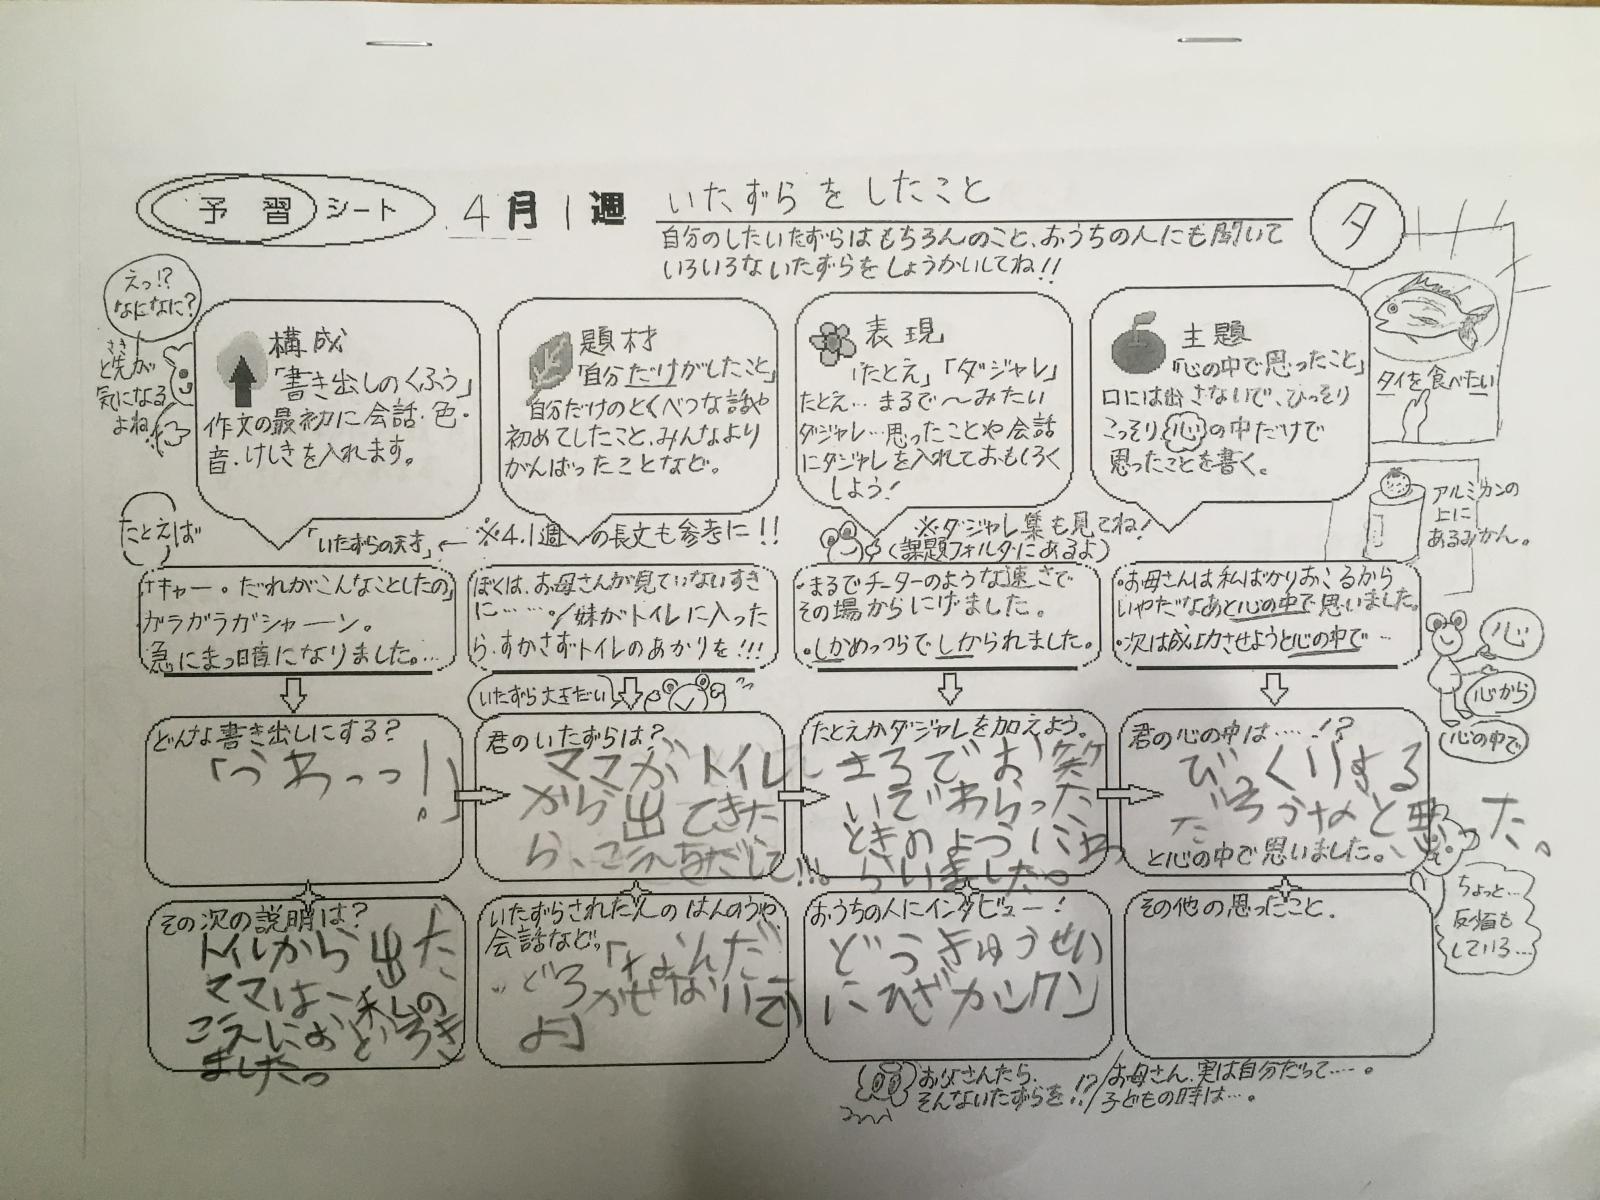 予習シート 4月1週 いたずらをしたこと
夕
自分のしたいたずらはもちろんのこと、おうちの人にも聞いて
いろいろないたずらをしょうかいしてね!!
えっ!?
なになに?
さき
と先が
気になる
よね。
構成
「書き出しのくふう」
作文の最初に会話・色・
音・けしきを入れます。
題材
「自分だけがしたこと」
自分だけのとくべつな話や
初めてしたこと、みんなより
がんばったことなど。
表現
「たとえ」「ダジャレ」
たとえ…まるで〜みたい
ダジャレ…思ったことや会話
にダジャレを入れておもしろく
しよう!
主題
「心の中で思ったこと」
口には出さないで、ひっそり
こっそり心の中だけで
思ったことを書く。
タイを食べたい
アルミカンの
上に
あるみかん。
たとえば
「いたずらの天才」← ※4.1週の長文も参考に!!
※ダジャレ集も見てね!
(課題フォルダにあるよ)
「キャー。だれがこんなことしたの」
ガラガラガシャーン。
急にまっ暗になりました。…
ぼくは、お母さんが見ていないすき
に……。/妹がトイレに入った
ら、すかさずトイレのあかりを!!!
・まるでチーターのような速さで
その場からにげました。
・しかめっつらでしかられました。
・お母さんは私ばかりおこるから
いやだなあと心の中で思いました。
・次は成功させようと心の中で…
心
心から
心の中で
いたずら大王だい
どんな書き出しにする?
「うわっっ!」
君のいたずらは?
ママがトイレ
から出てきた
ら、こえをだして!!!。
たとえかダジャレを加えよう。
まるでお笑
いでわらった
ときのようにわ
らいました。
君の心の中は……!?
びっくりする
だろうなと思った。
と心の中で思いました。
ちょっと…
反省も
している…
その次の説明は?
トイレから出た
ママは、私の
こえにおどろき
ました。
いたずらされた人のはんのうや
会話など。
「なんだ
どろかせないで
よ」
おうちの人にインタビュー!
どうきゅうせい
にひざカックン
その他の思ったこと。
お父さんたら、
そんないたずらを!?/お母さん、実は自分だって……。
子どもの時は…。